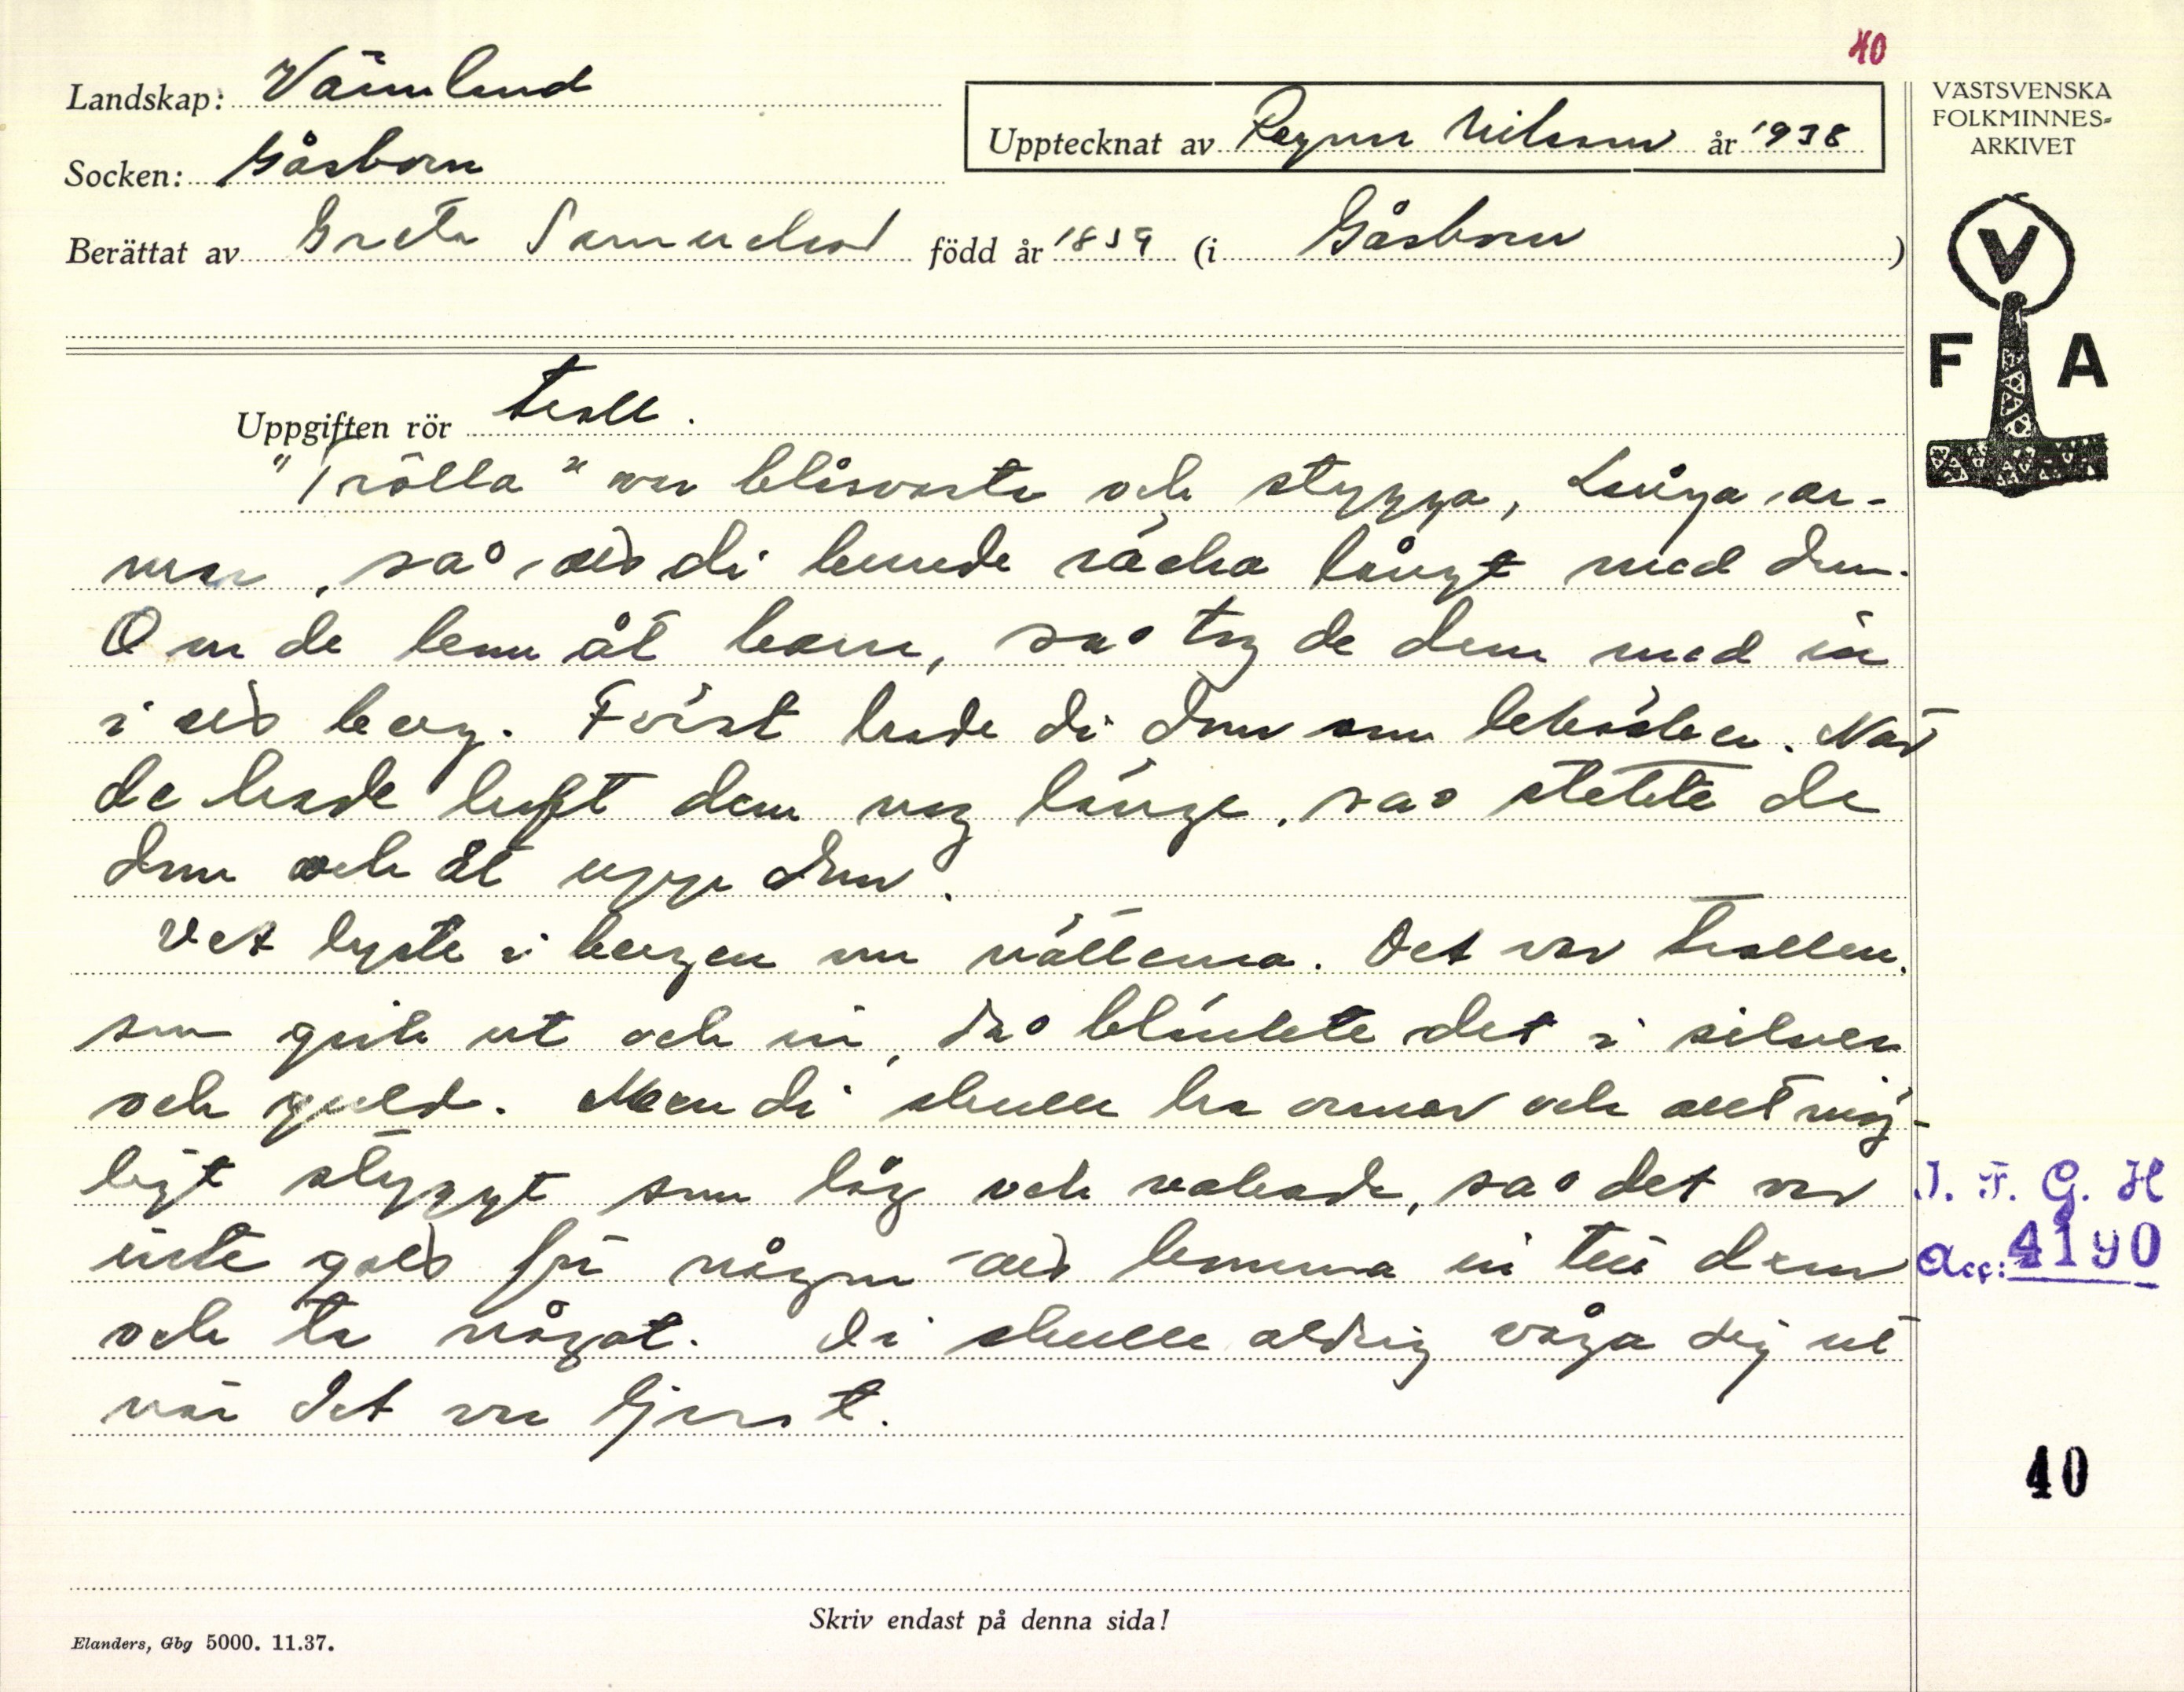 40
Landskap: Värmland
Upptecknat av Ragnar Nilsson år 1938
Socken: Gåsborn
Berättat av Greta Samuelsson född år 1859 (i Gåsborn)
VÄSTSVENSKA
FOLKMINNES-
ARKIVET
V
F A
Uppgiften rör troll.
"Trölla" var blåsvarta och stygga, Långa ar-
mar, så att di kunde räcka långt med dem.
Om de kom åt barn, så tog de dem med in
i ett berg. Först hade di dem som
När
de hade haft dem nog länge, så stekte de
dem och åt upp dem.
Det lyste i bergen om nätterna. Det var trollen,
som gick ut och in, då blänkte det i silver
och guld. Men di skulle ha ormar och allt möj-
ligt styggt som låg och vaktade, så det var
inte gott för någon att komma in till dem
och ta något. Di skulle aldrig våga sig ut
när det var ljust.
I. F. G. H
Acc: 4190
40
Skriv endast på denna sida!
Elanders, Gbg 5000. 11.37.